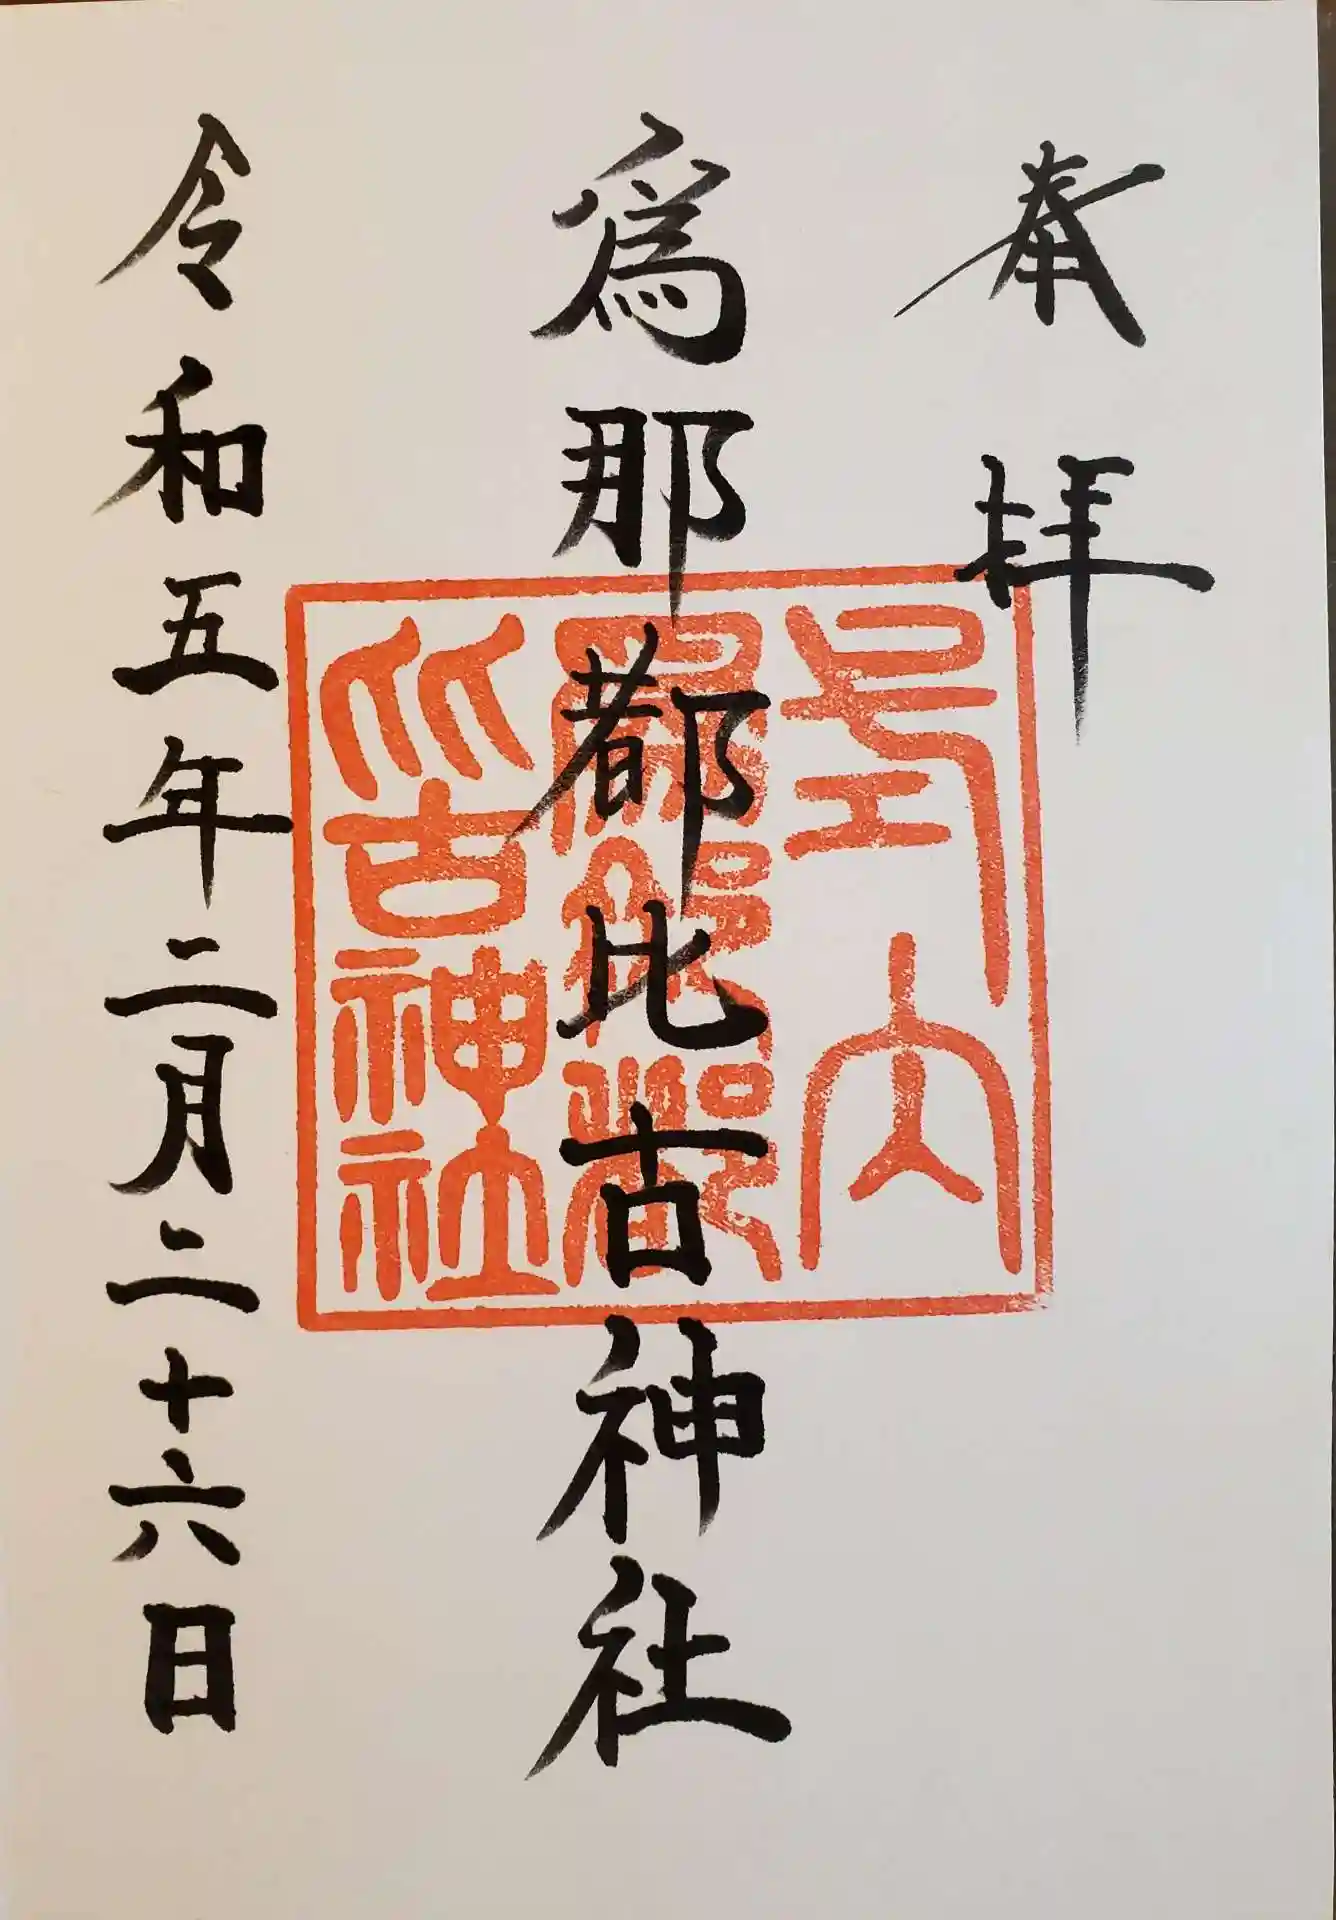 奉拝
爲那都比古神社
令和五年二月二十六日
式内
爲那都
比古神社